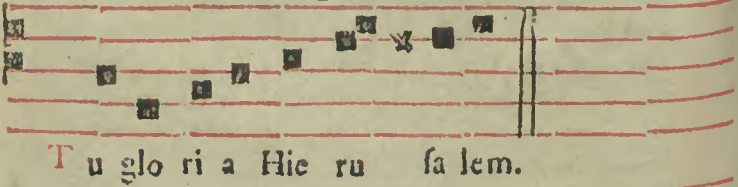 Tu glo ri a Hie ru ſa lem.